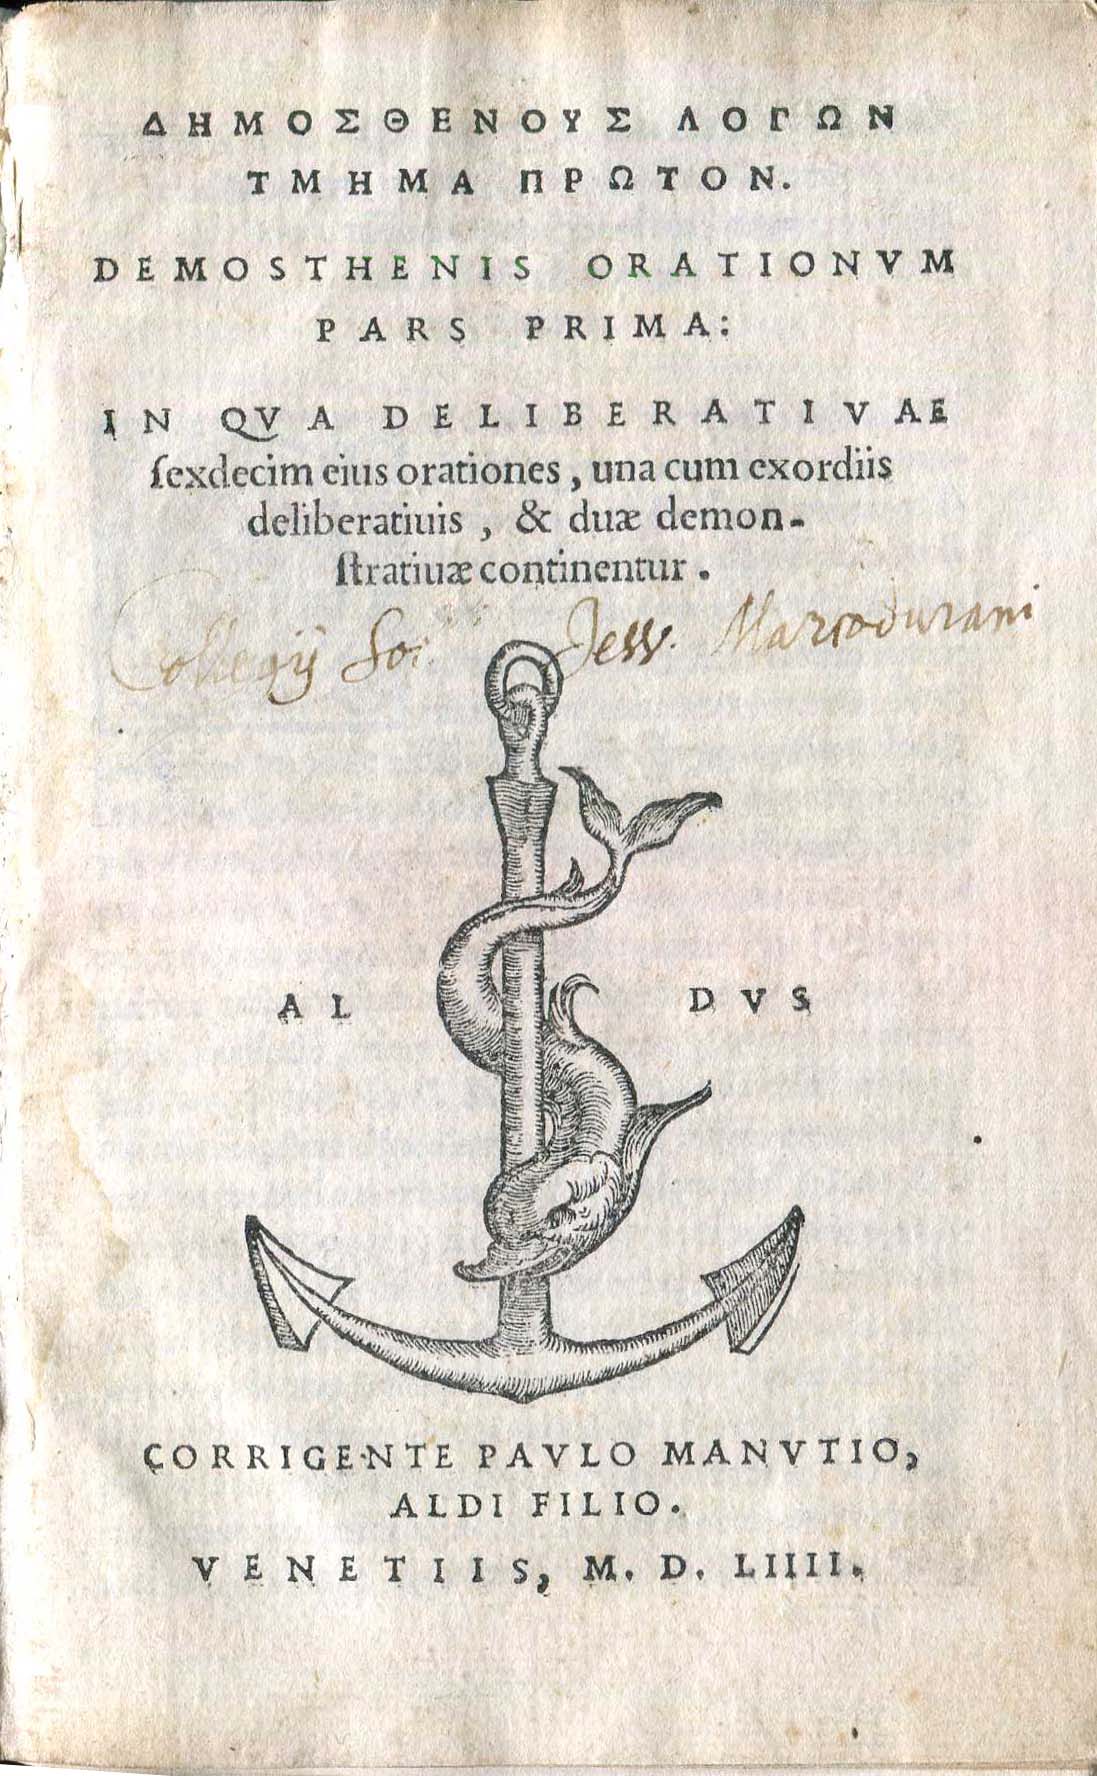 ΔΗΜΟΣΘΕΝΟΥΣ ΛΟΓΩΝ
ΤΜΗΜΑ ΠΡΩΤΟΝ.
DEMOSTHENIS ORATIONVM
PARS PRIMA:
IN QVA DELIBERATIVAE
ſexdecim eius orationes, una cum exordiis
deliberatiuis, & duæ demon-
ſtratiuæ continentur.
Collegij Soc. Jesu. Marcodurani
AL DVS
CORRIGENTE PAVLO MANVTIO,
ALDI FILIO.
VENETIIS, M. D. LIIII.